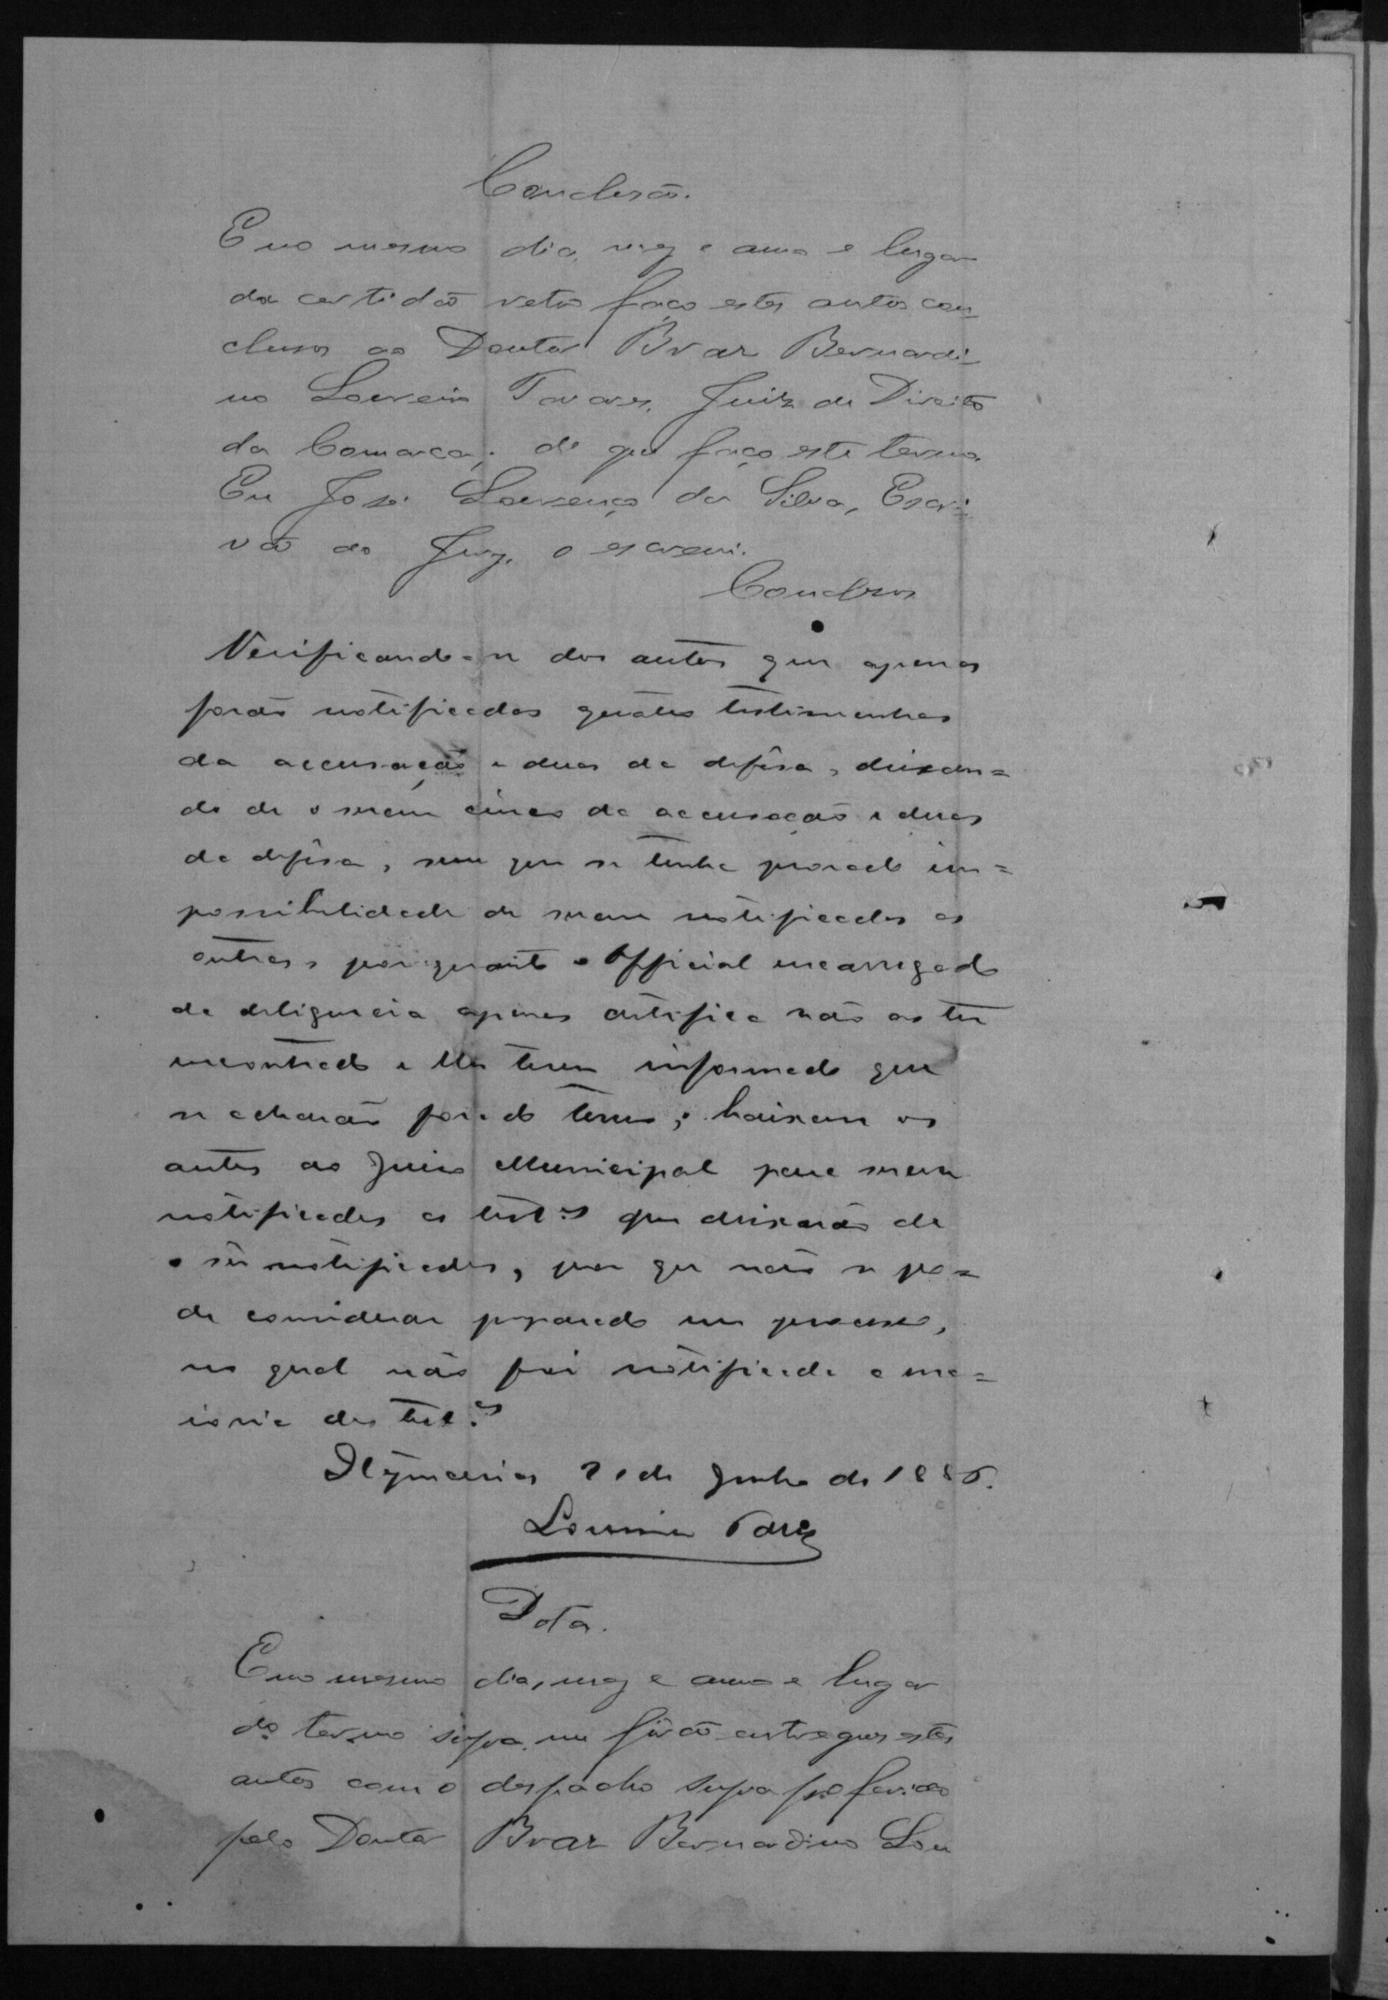 Conclusão.
E no mesmo dia, mez e anno e lugar
da certidão retro faço estes autos con-
clusos ao Doutor Braz Bernardi-
no Loureiro Tavares, Juiz de Direito
da Comarca; do que faço este termo.
Eu José Lourenço da Silva, Escri-
vão do Jury, o escrevi.
Conclusos
Verificando-se dos autos que apenas
forão notificadas quatro testimunhas
da accusação e duas da defêsa, deixan=
do de o serem cinco da accusação e duas
da defêsa, sem que se tenha provado im=
possibilidade de serem notificadas as
outras, porquanto o Official encarregado
da deligencia apenas certifica não as ter
encontrado e lhe terem informado que
se achavão fora do têrmo; baixem os
autos ao Juizo Municipal para serem
notificadas as test.as que deixarão de
o sêr notificadas, por que não se po=
de considerar preparado um processo,
no qual não foi notificada a ma=
ioria das test.as
21 de Junho de 1886.
Loureiro Tavares
Data.
E no mesmo dia, mez e anno e lugar
do termo supra, me fôrão entregues estes
autos com o despacho supra proferido
pelo Doutor Braz Bernardino Lou